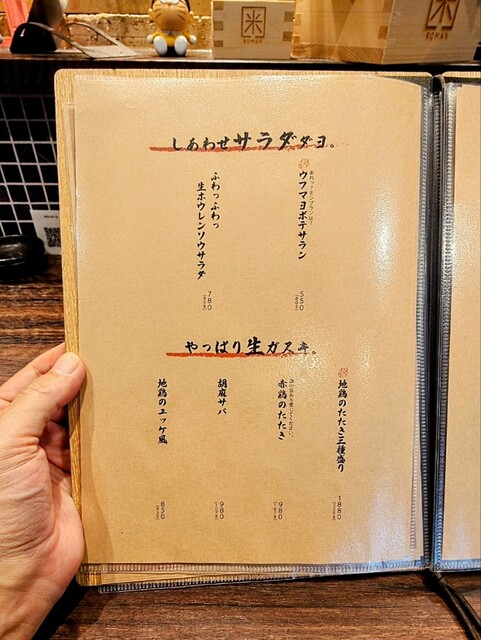 米
ROMAN
米
ROMAN
しあわせサラダダヨ。
あれっ?モンブランは?
ウフマヨポテサラン
550
ふわっふわっ
生ホウレンソウサラダ
780
やっぱり生ガスキ。
地鶏のたたき三種盛り
1880
赤鶏のたたき
980
胡麻サバ
980
地鶏のユッケ風
850